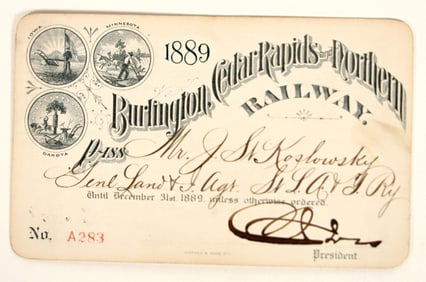 IOWA
MINNESOTA
DAKOTA
1889
Burlington, Cedar Rapids and Northern
RAILWAY.
Pass Mr. J. W. Koslowsky
Genl Land & I. Agt. St L. A. & T. Ry
Until December 31st. 1889, unless otherwise ordered.
No. A283
President